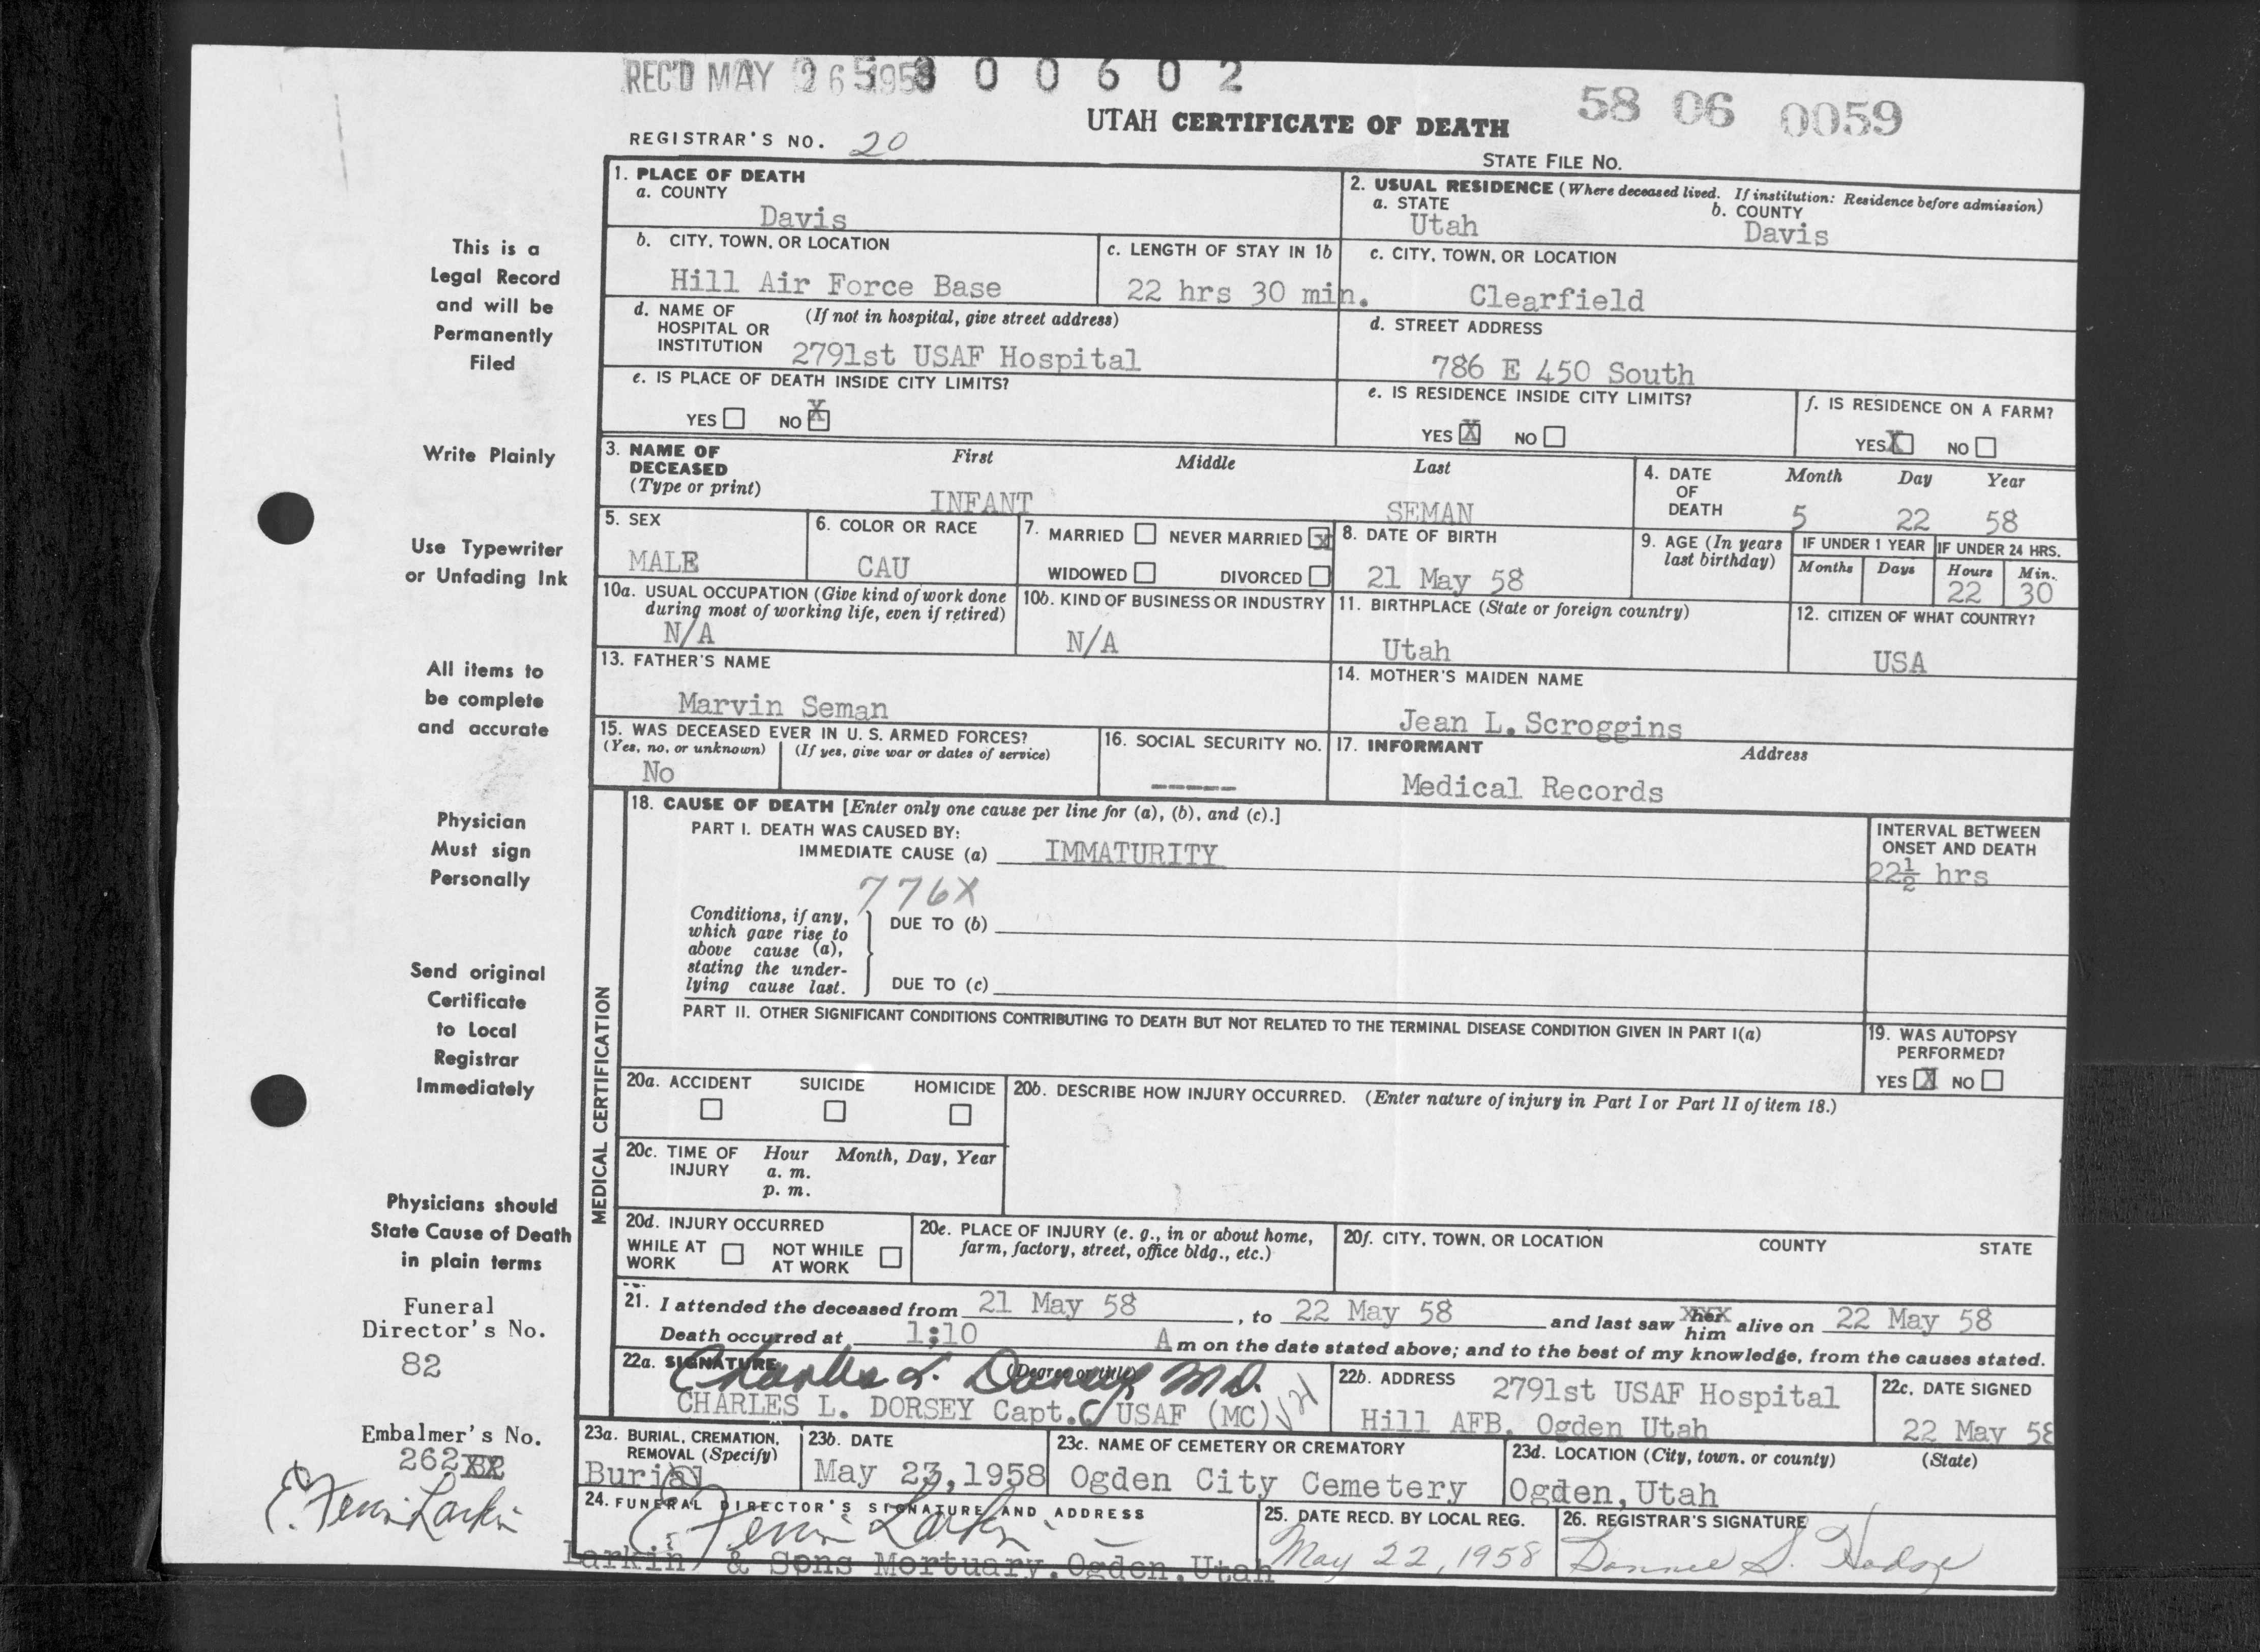 REC'D MAY 26 1958 5 8 0 0 6 0 2
58 06 0059
UTAH CERTIFICATE OF DEATH
REGISTRAR'S NO. 20
STATE FILE No.
1. PLACE OF DEATH
a. COUNTY
Davis
2. USUAL RESIDENCE (Where deceased lived. If institution: Residence before admission)
a. STATE b. COUNTY
Utah Davis
b. CITY, TOWN, OR LOCATION
Hill Air Force Base
c. LENGTH OF STAY IN 1b
22 hrs 30 min.
c. CITY, TOWN, OR LOCATION
Clearfield
d. NAME OF (If not in hospital, give street address)
HOSPITAL OR
INSTITUTION 2791st USAF Hospital
d. STREET ADDRESS
786 E 450 South
e. IS PLACE OF DEATH INSIDE CITY LIMITS?
YES NO X
e. IS RESIDENCE INSIDE CITY LIMITS?
YES X NO
f. IS RESIDENCE ON A FARM?
YES X NO
3. NAME OF DECEASED
(Type or print)
First Middle Last
INFANT SEMAN
4. DATE OF DEATH
Month Day Year
5 22 58
5. SEX
MALE
6. COLOR OR RACE
CAU
7. MARRIED NEVER MARRIED X
WIDOWED DIVORCED
8. DATE OF BIRTH
21 May 58
9. AGE (In years last birthday)
IF UNDER 1 YEAR IF UNDER 24 HRS.
Months Days Hours Min.
22 30
10a. USUAL OCCUPATION (Give kind of work done
during most of working life, even if retired)
N/A
10b. KIND OF BUSINESS OR INDUSTRY
N/A
11. BIRTHPLACE (State or foreign country)
Utah
12. CITIZEN OF WHAT COUNTRY?
USA
13. FATHER'S NAME
Marvin Seman
14. MOTHER'S MAIDEN NAME
Jean L. Scroggins
15. WAS DECEASED EVER IN U. S. ARMED FORCES?
(Yes, no, or unknown) (If yes, give war or dates of service)
No
16. SOCIAL SECURITY NO.
-----
17. INFORMANT Address
Medical Records
MEDICAL CERTIFICATION
18. CAUSE OF DEATH [Enter only one cause per line for (a), (b), and (c).]
PART I. DEATH WAS CAUSED BY:
IMMEDIATE CAUSE (a) IMMATURITY
INTERVAL BETWEEN
ONSET AND DEATH
22½ hrs
776X
Conditions, if any,
which gave rise to
above cause (a),
stating the under-
lying cause last.
DUE TO (b)
DUE TO (c)
PART II. OTHER SIGNIFICANT CONDITIONS CONTRIBUTING TO DEATH BUT NOT RELATED TO THE TERMINAL DISEASE CONDITION GIVEN IN PART I(a)
19. WAS AUTOPSY
PERFORMED?
YES X NO
20a. ACCIDENT SUICIDE HOMICIDE
20b. DESCRIBE HOW INJURY OCCURRED. (Enter nature of injury in Part I or Part II of item 18.)
20c. TIME OF INJURY
Hour Month, Day, Year
a. m.
p. m.
20d. INJURY OCCURRED
WHILE AT WORK NOT WHILE AT WORK
20e. PLACE OF INJURY (e. g., in or about home,
farm, factory, street, office bldg., etc.)
20f. CITY, TOWN, OR LOCATION COUNTY STATE
21. I attended the deceased from 21 May 58, to 22 May 58 and last saw her him alive on 22 May 58
Death occurred at 1:10 A m on the date stated above; and to the best of my knowledge, from the causes stated.
22a. SIGNATURE (Degree or title)
Charles L. Dorsey MD.
CHARLES L. DORSEY Capt. USAF (MC)
22b. ADDRESS 2791st USAF Hospital
Hill AFB, Ogden Utah
22c. DATE SIGNED
22 May 58
23a. BURIAL, CREMATION,
REMOVAL (Specify)
Burial
23b. DATE
May 23, 1958
23c. NAME OF CEMETERY OR CREMATORY
Ogden City Cemetery
23d. LOCATION (City, town, or county) (State)
Ogden, Utah
24. FUNERAL DIRECTOR'S SIGNATURE AND ADDRESS
E. Ferrin Larkin
Larkin & Sons Mortuary, Ogden, Utah
25. DATE RECD. BY LOCAL REG.
May 22, 1958
26. REGISTRAR'S SIGNATURE
S. Hodge
This is a
Legal Record
and will be
Permanently
Filed
Write Plainly
Use Typewriter
or Unfading Ink
All items to
be complete
and accurate
Physician
Must sign
Personally
Send original
Certificate
to Local
Registrar
Immediately
Physicians should
State Cause of Death
in plain terms
Funeral
Director's No.
82
Embalmer's No.
262
E. Ferrin Larkin